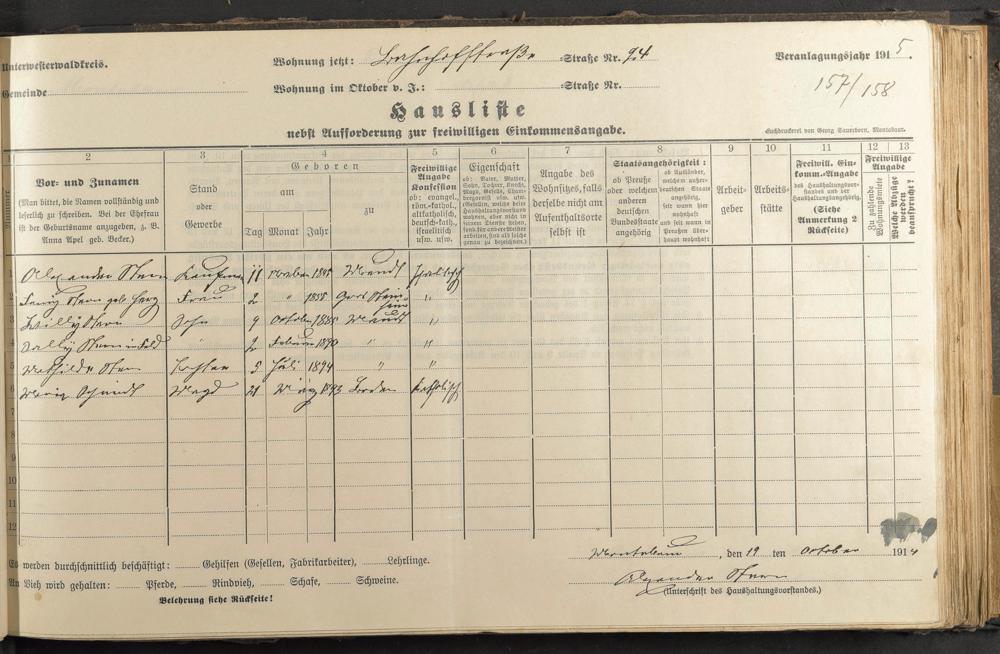 Unterwesterwaldkreis.
Wohnung jetzt: Bahnhofstraße -Straße Nr. 94
Veranlagungsjahr 1915.
Gemeinde
Wohnung im Oktober v. J.: -Straße Nr.
157/158
Hausliste
nebst Aufforderung zur freiwilligen Einkommensangabe.
Buchdruckerei von Georg Sauerborn, Montabaur.
1 2 3 4 5 6 7 8 9 10 11 12 13
Nummer
Vor- und Zunamen
(Man bittet, die Namen vollständig und
leserlich zu schreiben. Bei der Ehefrau
ist der Geburtsname anzugeben, z. B.
Anna Apel geb. Becker.)
Stand
oder
Gewerbe
Geboren
am
zu
Tag Monat Jahr
Freiwillige
Angabe
Konfession
ob: evangel.,
röm.-kathol.,
altkatholisch,
deutsch-kath.,
israelitisch
usw. usw.
Eigenschaft
ob: Vater, Mutter,
Sohn, Tochter, Knecht,
Magd, Geselle, Cham-
bregarnist usw. usw.
(Gesellen, welche beim
Haushaltungsvorstand
wohnen, aber nicht in
seinen Dienste stehen,
sond. für and. Gewerbetreibende
arbeiten, sind als solche
genau zu bezeichnen.)
Angabe des
Wohnsitzes, falls
derselbe nicht am
Aufenthaltsorte
selbst ist
Staatsangehörigkeit:
ob Preuße
oder welchem
anderen
deutschen
Bundesstaate
angehörig
ob Ausländer,
welchem außer-
deutschen Staate
angehörig,
seit wann hier
wohnhaft
und seit wann in
Preußen über-
haupt wohnhaft
Arbeit-
geber
Arbeits-
stätte
Freiwill. Ein-
komm.-Angabe
des Haushaltungsvor-
standes und der
Haushaltungsangehörig.
(Siehe
Anmerkung 2
Rückseite)
Freiwillige
Angabe
Zu zahlende
Wohnungsmiete
Welche Abzüge
werden
beansprucht?
1 Alexander Stern Kaufmann 11
2 Fenny Stern geb. Herz Frau 2 " 1855 "
3 Willy Stern Sohn 9 Oktober 1885 "
4 " 2 Februar 1890 " "
5 Mathilde Stern Tochter 5 Juli 1894 " "
6 Maria Schmidt Magd 21 März 1893 katholisch
7
8
9
10
11
12
Es werden durchschnittlich beschäftigt: Gehilfen (Gesellen, Fabrikarbeiter), Lehrlinge.
An Vieh wird gehalten: Pferde, Rindvieh, Schafe, Schweine.
Belehrung siehe Rückseite!
Montabaur, den 19 ten Oktober 1914
Alexander Stern
(Unterschrift des Haushaltungsvorstandes.)